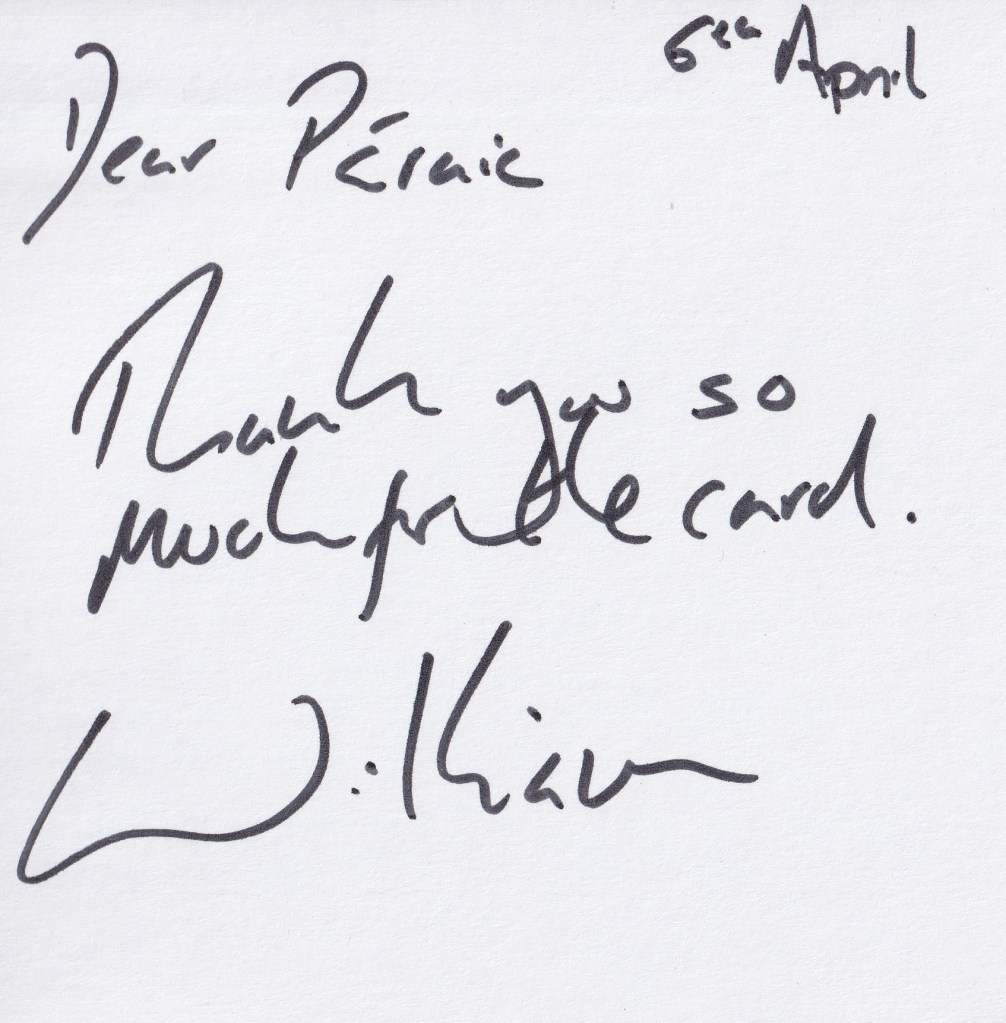 6th April
Dear Páraic
Thank you so
much for the card.
William